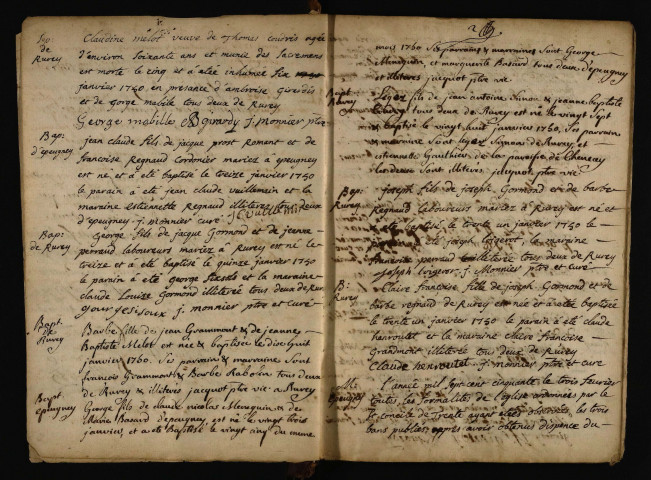 Sep:
de
Rurey
Claudine melot veuve de thomes coudris agée
d'environ soixante ans et munie des sacremens
est morte le cinq et a étée inhumée six
janvier 1750. en presance d'ambroise girardis
et de george mabile tous deux de Rurey
George mabille girardy J. monnier ptre
Bap:
d'epeugney
jean claude fils de jacque prost Roment et de
francoise Regnaud Cordonier mariez a epeugney
est ne et a été baptisé le treize janvier 1750
le parain a été jean claude vuillemin et la
maraine estiennette Regnaud illiterée tous deux
d'epeugney J. monnier curé J C vuillemin
Bap:
de Rurey
George fils de jacque Gormond et de jeanne
perraud laboureurs mariez a Rurey est né le
treize et a été baptisé le quinze janvier 1750
le parain a été george et la maraine
claude Louise Gormond illiterée tous deux de Rurey
J. monnier ptre et curé
Bapt.
de
Rurey
Barbe fille de jean Grammont & de jeanne
Baptiste Melot est née & baptisée le dix huit
janvier 1750. Ses parrain & marraine sont
francois Grammont & Barbe Rabolin tous deux
de Rurey & illiterés jacquot ptre vic. a Rurey
Bapt
epeugney
George fils de claude nicolas Meneguin & de
Marie Basard d'epeugney, est né le vingt trois
janvier, et a eté Baptisé le vingt cinq du meme
2
mois 1750 Ses parrains & marraines sont George
Meneguin, et marguerite Basard tous deux d'epeugney
et illiterés jacquot ptre vic
Bapt
Rurey
fils de jean antoine Simon & jeanne baptiste
tous deux de Rurey est né le vingt sept
& baptisé le vingt huit janvier 1750. Ses parrain
& maraine sont Simon de Rurey, et
estiennette Gauthier de la paroisse de
les deux sont illiterés jacquot ptre vic
Bap:
Rurey
Joseph fils de joseph Gormond et de barbe
Regnaud laboureurs mariez a Rurey est né et
baptisé le trente un janvier 1750 le
été joseph Lorgerot, la maraine
francoise perraud illiterée tous deux de Rurey
Joseph lorgerot. J. Monnier ptre et curé
B:
Rurey
Claire francoise fille de joseph Gormond et de
barbe regnaud de Rurey est née et a été baptisée
le trente un janvier 1750 le parain a été claude
henroulet et la maraine claire francoise
Grandmont illiterée tous deux de Rurey
Claude henroulet J. monnier ptre et curé
M:
Epeugney
L'an mil sept cent cinquante le trois fevrier
toutes les formalités de l'eglise ordonnées par le
St concile de trente ayant étés observées, les trois
bans publiez apprès avoir obtenus dispence du